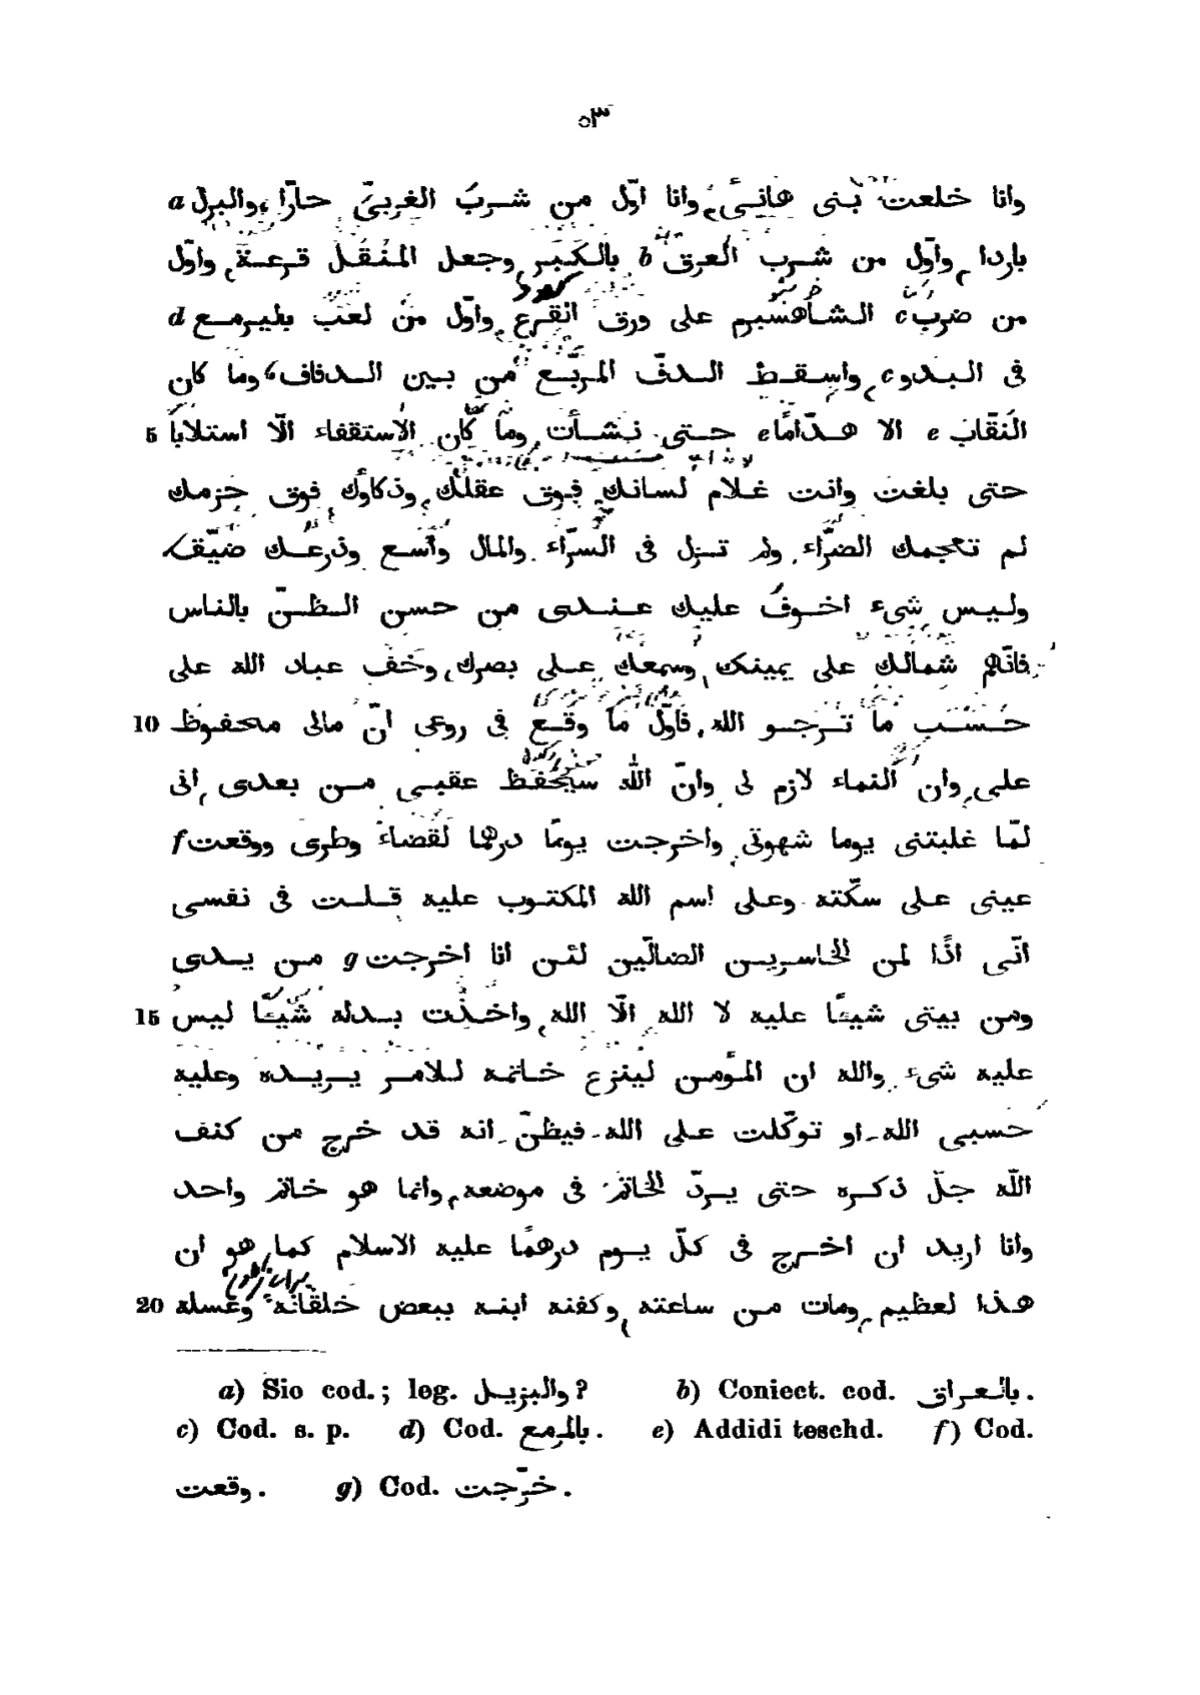 ٥٣
وانا خلعت بنى هانئ، وانا اوّل من شرب الغربىّ حارّا، والبرل a
باردا، واوّل من شرب العرق b بالكبر، وجعل المنقل قرعة، واوّل
من ضرب c الشاهسبرم على ورق القرع، واوّل من لعب بليرمع d
فى البدو c، واسقط الدفّ المربّع من بين الدفاف، وما كان
5 النقّاب e الا هدّاما e حتى نشأت، وما كان الاستقفاء الّا استلابا
حتى بلغت وانت غلام لسانك فوق عقلك، وذكاؤك فوق حزمك
لم تعجمك الضرّاء، ولم تزل فى السرّاء، والمال واسع وذرعك ضيّق،
وليس شىء اخوف عليك عندى من حسن الظنّ بالناس
فانّهم شمالك على يمينك، وسمعك على بصرك، وخف عباد الله على
10 حسب ما ترجو الله، فاوّل ما وقع فى روعى انّ مالى محفوظ
على، وان النماء لازم لى وانّ الله سيحفظ عقبى من بعدى، انى
لمّا غلبتنى يوما شهوتى، واخرجت يومًا درهما لقضاء وطرى ووقعت f
عينى على سكّته وعلى اسم الله المكتوب عليه قلت فى نفسى
انّى اذًا لمن الخاسرين الضالّين لئن انا اخرجت g من يدى
15 ومن بيتى شيئًا عليه لا الله الّا الله، واخذت بدله شيئًا ليس
عليه شىء، والله ان المؤمن لينزع خاتمه للامر يريده وعليه
حسبى الله، او توكّلت على الله، فيظنّ انه قد خرج من كنف
اللّه جلّ ذكره حتى يردّ الخاتم فى موضعه، وانما هو خاتم واحد
وانا اريد ان اخرج فى كلّ يوم درهمًا عليه الاسلام كما هو ان
20 هذا لعظيم، ومات من ساعته، وكفنه ابنه ببعض خلقانه، وغسله
a) Sic cod.; leg. والبزيل? b) Coniect. cod. بالعراق.
c) Cod. s. p. d) Cod. بالمرمع. e) Addidi teschd. f) Cod.
وقعت. g) Cod. خرّجت.